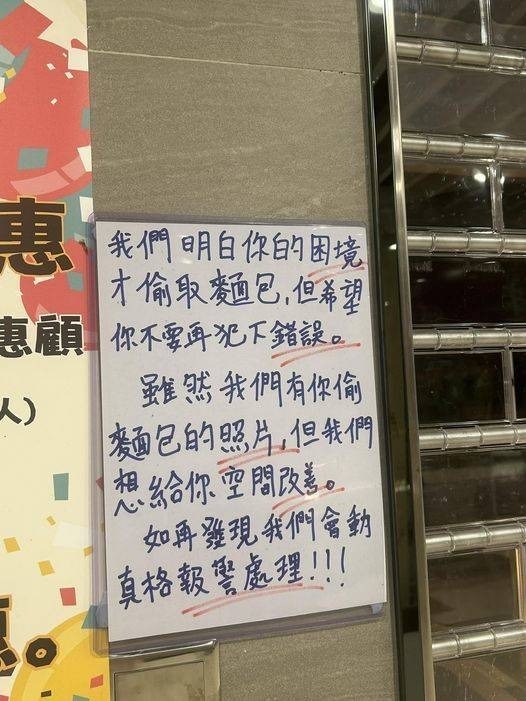 惠
惠顧
人）
惠。
我們明白你的困境
才偷取麵包，但希望
你不要再犯下錯誤。
雖然我們有你偷
麵包的照片，但我們
想給你空間改善。
如再發現我們會動
真格報警處理！！！